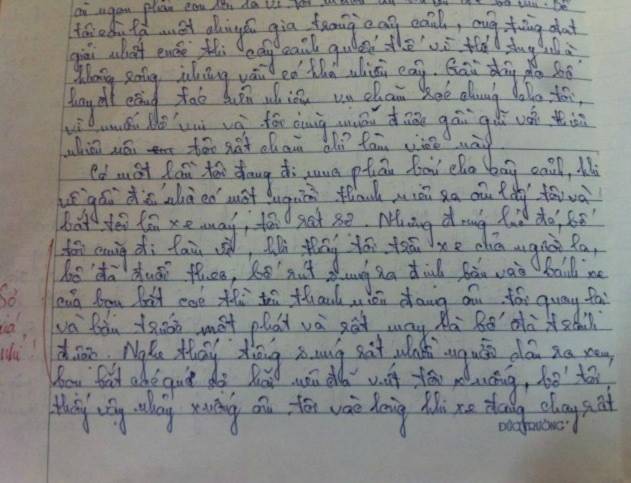 tôi còn là một chuyên gia trồng cây cảnh, ông từng đạt
giải nhất cuộc thi cây cảnh quốc tế vì thế tuy nhà
không rộng nhưng vẫn có khá nhiều cây. Gần đây do bố
hay đi công tác nên nhiệm vụ chăm sóc chúng cho tôi,
vì muốn bố vui và tôi cũng muốn được gần gũi với thiên
nhiên nên tôi rất chăm chỉ làm việc này.
Có một lần tôi đang đi mua phân bón cho cây cảnh, khi
về gần đến nhà có một người thanh niên ra ôm lấy tôi và
bắt tôi lên xe máy, tôi rất sợ. Nhưng đúng lúc đó, bố
tôi cũng đi làm về, khi thấy tôi trên xe của người lạ,
bố đã đuổi theo, bố rút súng ra định bắn vào bánh xe
của bọn bắt cóc thì tên thanh niên đang ôm tôi quay lại
và bắn trước một phát và rất may là bố đã tránh
được. Nghe thấy tiếng súng rất nhiều người dân ra xem,
bọn bắt cóc quá sợ hãi nên đã vứt tôi xuống, bố tôi
thấy vậy nhảy xuống ôm tôi vào lòng khi xe đang chạy rất
ĐỨC TRƯỜNG